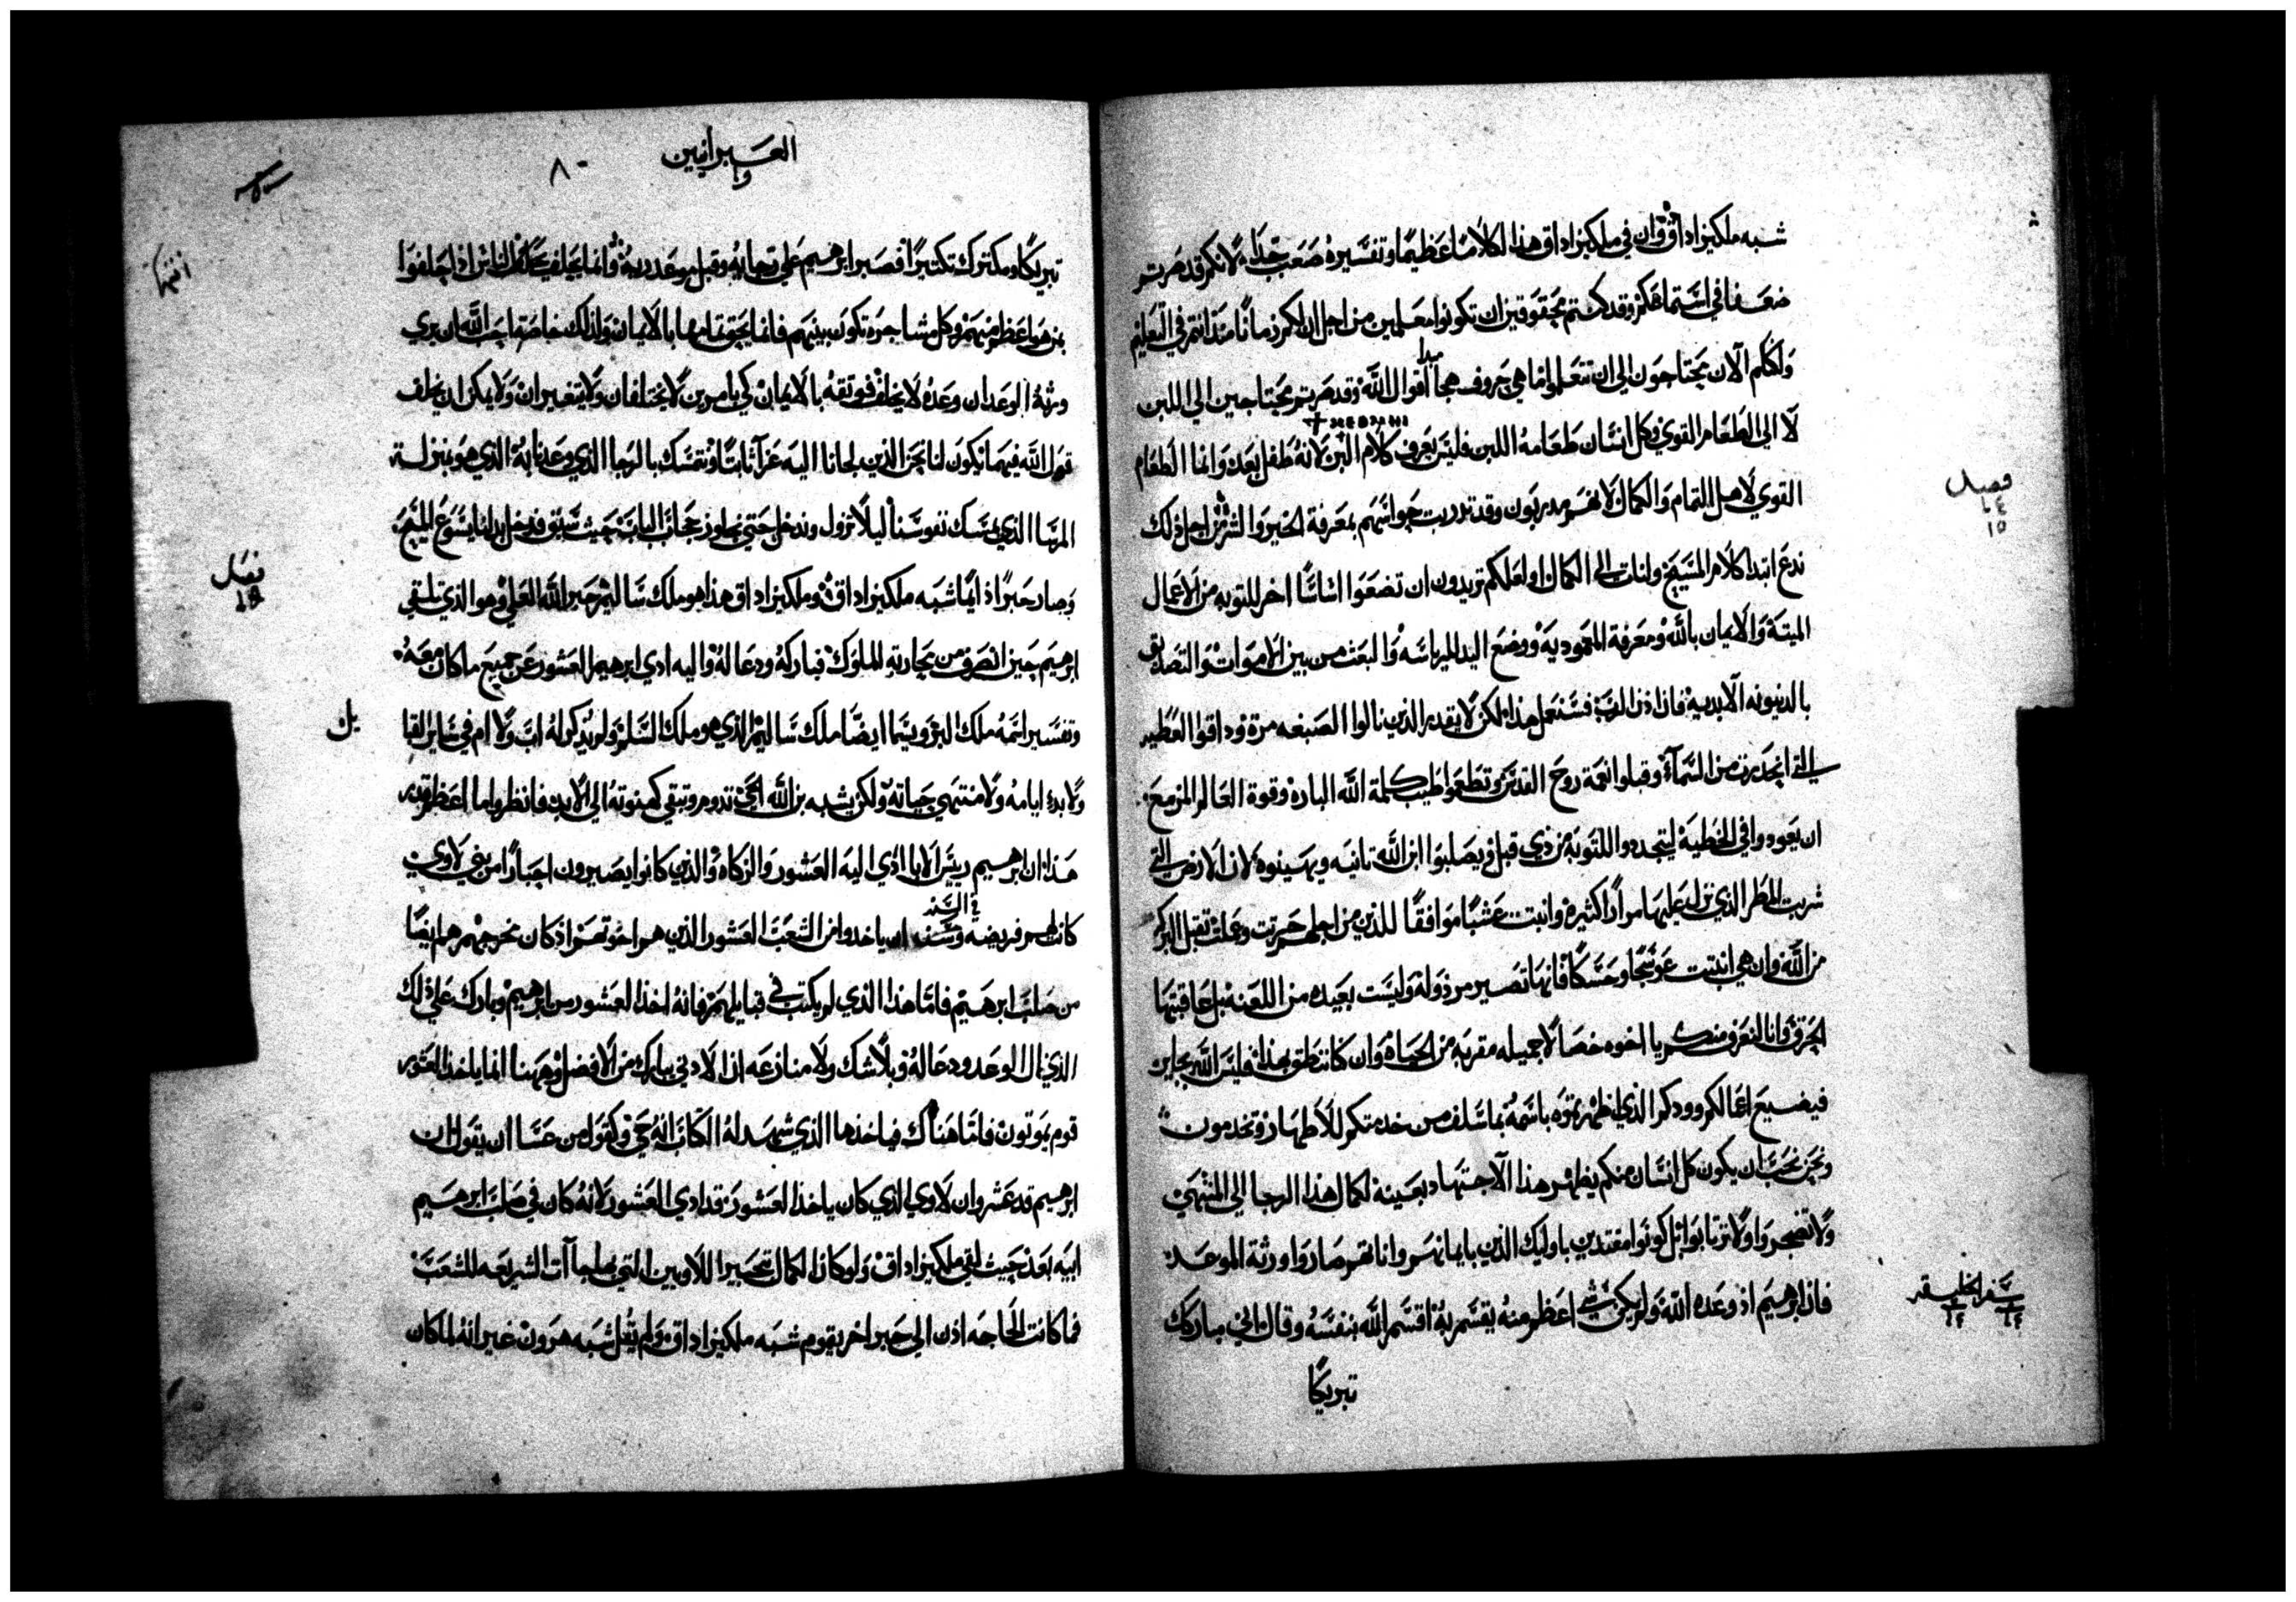 شبه ملكيزاداق وان في ملكيزاداق هذا لكلاما عظيما وتفسيره صعب جدا لانكم قد صرتم
ضعفا في استماعكم وقد كنتم محقوقين ان تكونوا معلمين من اجل ان لكم زمانا منذ انتم في التعليم
ولكنكم الان محتاجون الى ان تتعلموا ما هي حروف هجا مبدا اقوال الله وقد صرتم محتاجين الي اللبن
لا الي الطعام القوي وكل انسان طعامه اللبن فليس يعرف كلام البر لانه طفل بعد وانما الطعام
القوي لاهل التمام والكمال لانهم مدربون وقد تدربت حواسهم بمعرفة الخير والشر من اجل ذلك
فصل
١٥
ندع ابتدا كلام المسيح ولنات الى الكمال او لعلكم تريدون ان تضعوا اساسا اخر للتوبه من الاعمال
الميتة والايمان بالله ومعرفة المعموديه ووضع اليد للرياسه والبعث من بين الاموات والتصديق
بالدينونه الابديه فان اذن الرب فسنعمل هذا لكن لا يقدر الذين نالوا الصبغه مرة وذاقوا العطيه
التي انحدرت من السماء وقبلوا نعمة روح القدس وتطعموا طيب كلمة الله الباره وقوة العالم المزمع
ان يعودوا في الخطية ليتجددوا للتوبة من ذي قبل ويصلبوا ابن الله ثانيه ويهينوه لان الارض التي
شربت المطر الذي نزل عليها مرارا كثيرة وانبتت عشبا موافقا للذين من اجلهم حرثت وعملت تقبل البركه
من الله وان هي انبتت عوسجا وحسكا فانها تصير مرذولة وليست بعيده من اللعنه بل عاقبتها
الحرق وانا لنعرف منكم يا اخوه خصالا جميله مقربه من الحياة وان كنا ننطق بهذا فليس الله بجاير
فيضيع اعمالكم وودكم الذي اظهرتموه باسمه بما سلف من خدمتكم للاطهار وتخدمون
ونحن نحب ان يكون كل انسان منكم يظهر هذا الاجتهاد بعينه لكمال هذا الرجا الي المنتهي
ولا تضجروا ولا ترتابوا بل كونوا مقتدين باوليك الذين بايمانهم واناتهم صاروا ورثة الموعد
سفر الخليقه
فان ابرهيم اذ وعده الله ولم يكن شي اعظم منه يقسم به اقسم الله بنفسه وقال اني مباركك
تبريكا
العبرانيين
٨٠
تبريكا ومكثرك تكثيرا فصبر ابرهيم علي رجايه وقبل موعد ربه وانما يحلف الناس اذا حلفوا
بمن هو اعظم منهم وكل مشاجره تكون بينهم فانما يحققانها بالايمان ولذلك خاصة احب الله ان يري
ورثة الوعد ان وعده لا يخلف فوثقه بالايمان كي بامرين لا يختلفان ولا يتغيران ولا يمكن ان يخلف
قول الله فيهما يكون لنا نحن الذين لجانا اليه عزآ ثابتا ونتمسك بالرجا الذي وعدنا به الذي هو بمنزلة
المرسا الذي يمسك نفوسنا ليلا تزول وندخل حتي نجاوز حجاب الباب حيث سبق فدخل بدلنا يسوع المسيح
وصار حبرا دايما شبه ملكيزاداق وملكيزاداق هذا هو ملك ساليم حبر الله العلي وهو الذي تلقي
فصل
ابرهيم حين انصرف من محاربة الملوك فباركه ودعا له واليه ادي ابرهيم العشور عن جميع ما كان معه
وتفسير اسمه ملك البر ويسما ايضا ملك ساليم الذي هو ملك السلم ولم يذكر له اب ولا ام في ساير القبايل
ولا بدء ايامه ولا منتهي حياته ولكن يشبه بن الله الحي تدوم وتبقي كهنوته الي الابد فانظروا ما اعظم قدر
هذا ان ابرهيم رييس الابا ادي اليه العشور والزكاه والذين كانوا يصيرون احبارا من بني لاوي
كانت لهم فريضه وسنه في السنه ان ياخدوا من الشعب العشور الذين هم اخوتهم اذ كان خروجهم هم ايضا
من صلب ابرهيم فاما هذا الذي لم يكتب في قبايلهم فانه اخذ العشور من ابرهيم وبارك علي ذلك
الذي نال الوعد ودعا له وبلا شك ولا منازعه ان الادني يبارك من الافضل وههنا انما ياخذ العشور
قوم يموتون فاما هناك فياخذها الذي شهد له الكتاب انه حي وكقول من عسا ان يقول ان
ابرهيم قد عشر وان لاوي الذي كان ياخذ العشور قد ادي العشور لانه كان في صلب ابرهيم
ابيه بعد حيث لقي ملكيزاداق ولو كان الكمال بتحبير اللاويين التي بها جآت الشريعه للشعب
فما كانت الحاجه اذن الي حبر اخر يقوم شبه ملكيزاداق ولم يقل شبه هرون غير انه لما كان